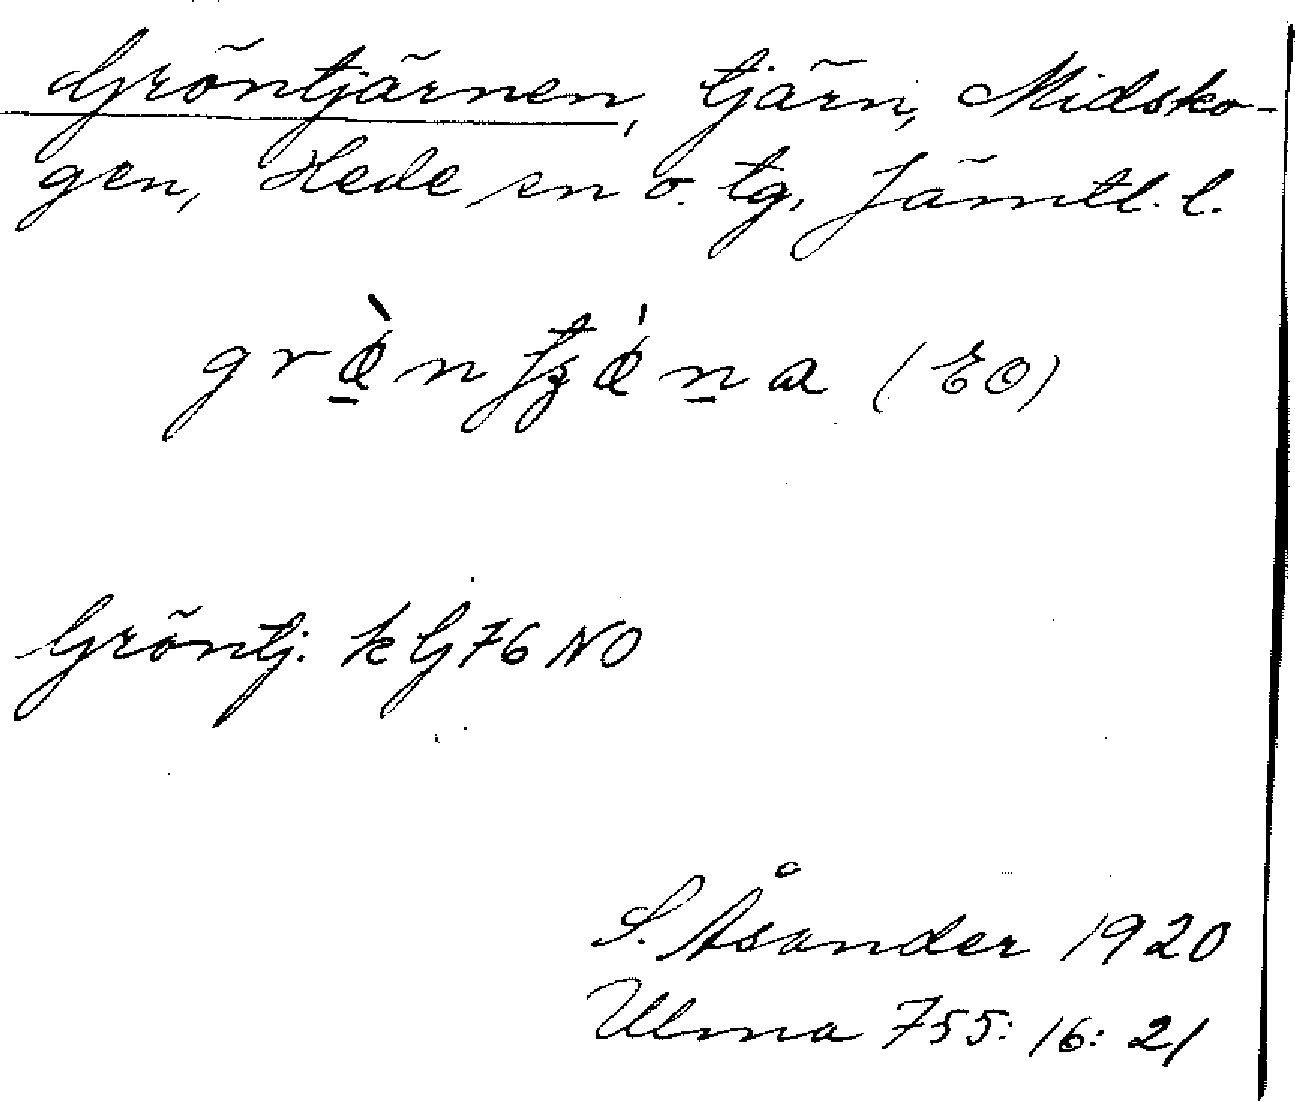 Gröntjärnen, tjärn, Midsko-
gen, Hede sn o. tg, Jämtl. l.
(EO)
Gröntj. k G76 NO
S. Åsander 1920
Ulma 755: 16: 21